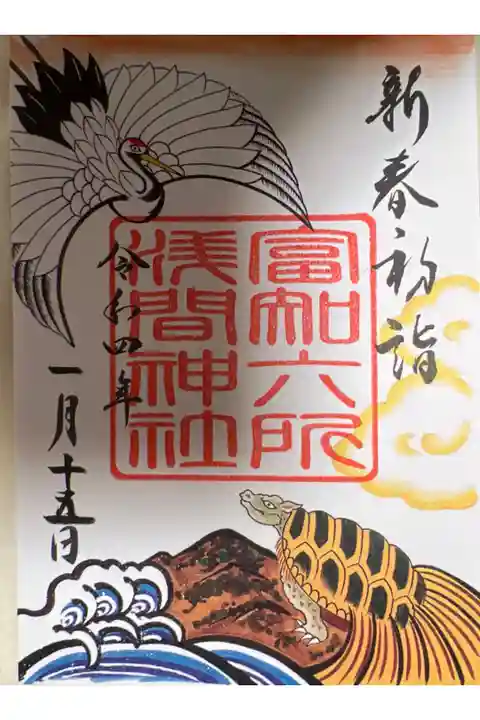 新春初詣
富知六所
浅間神社
令和四年
一月十五日